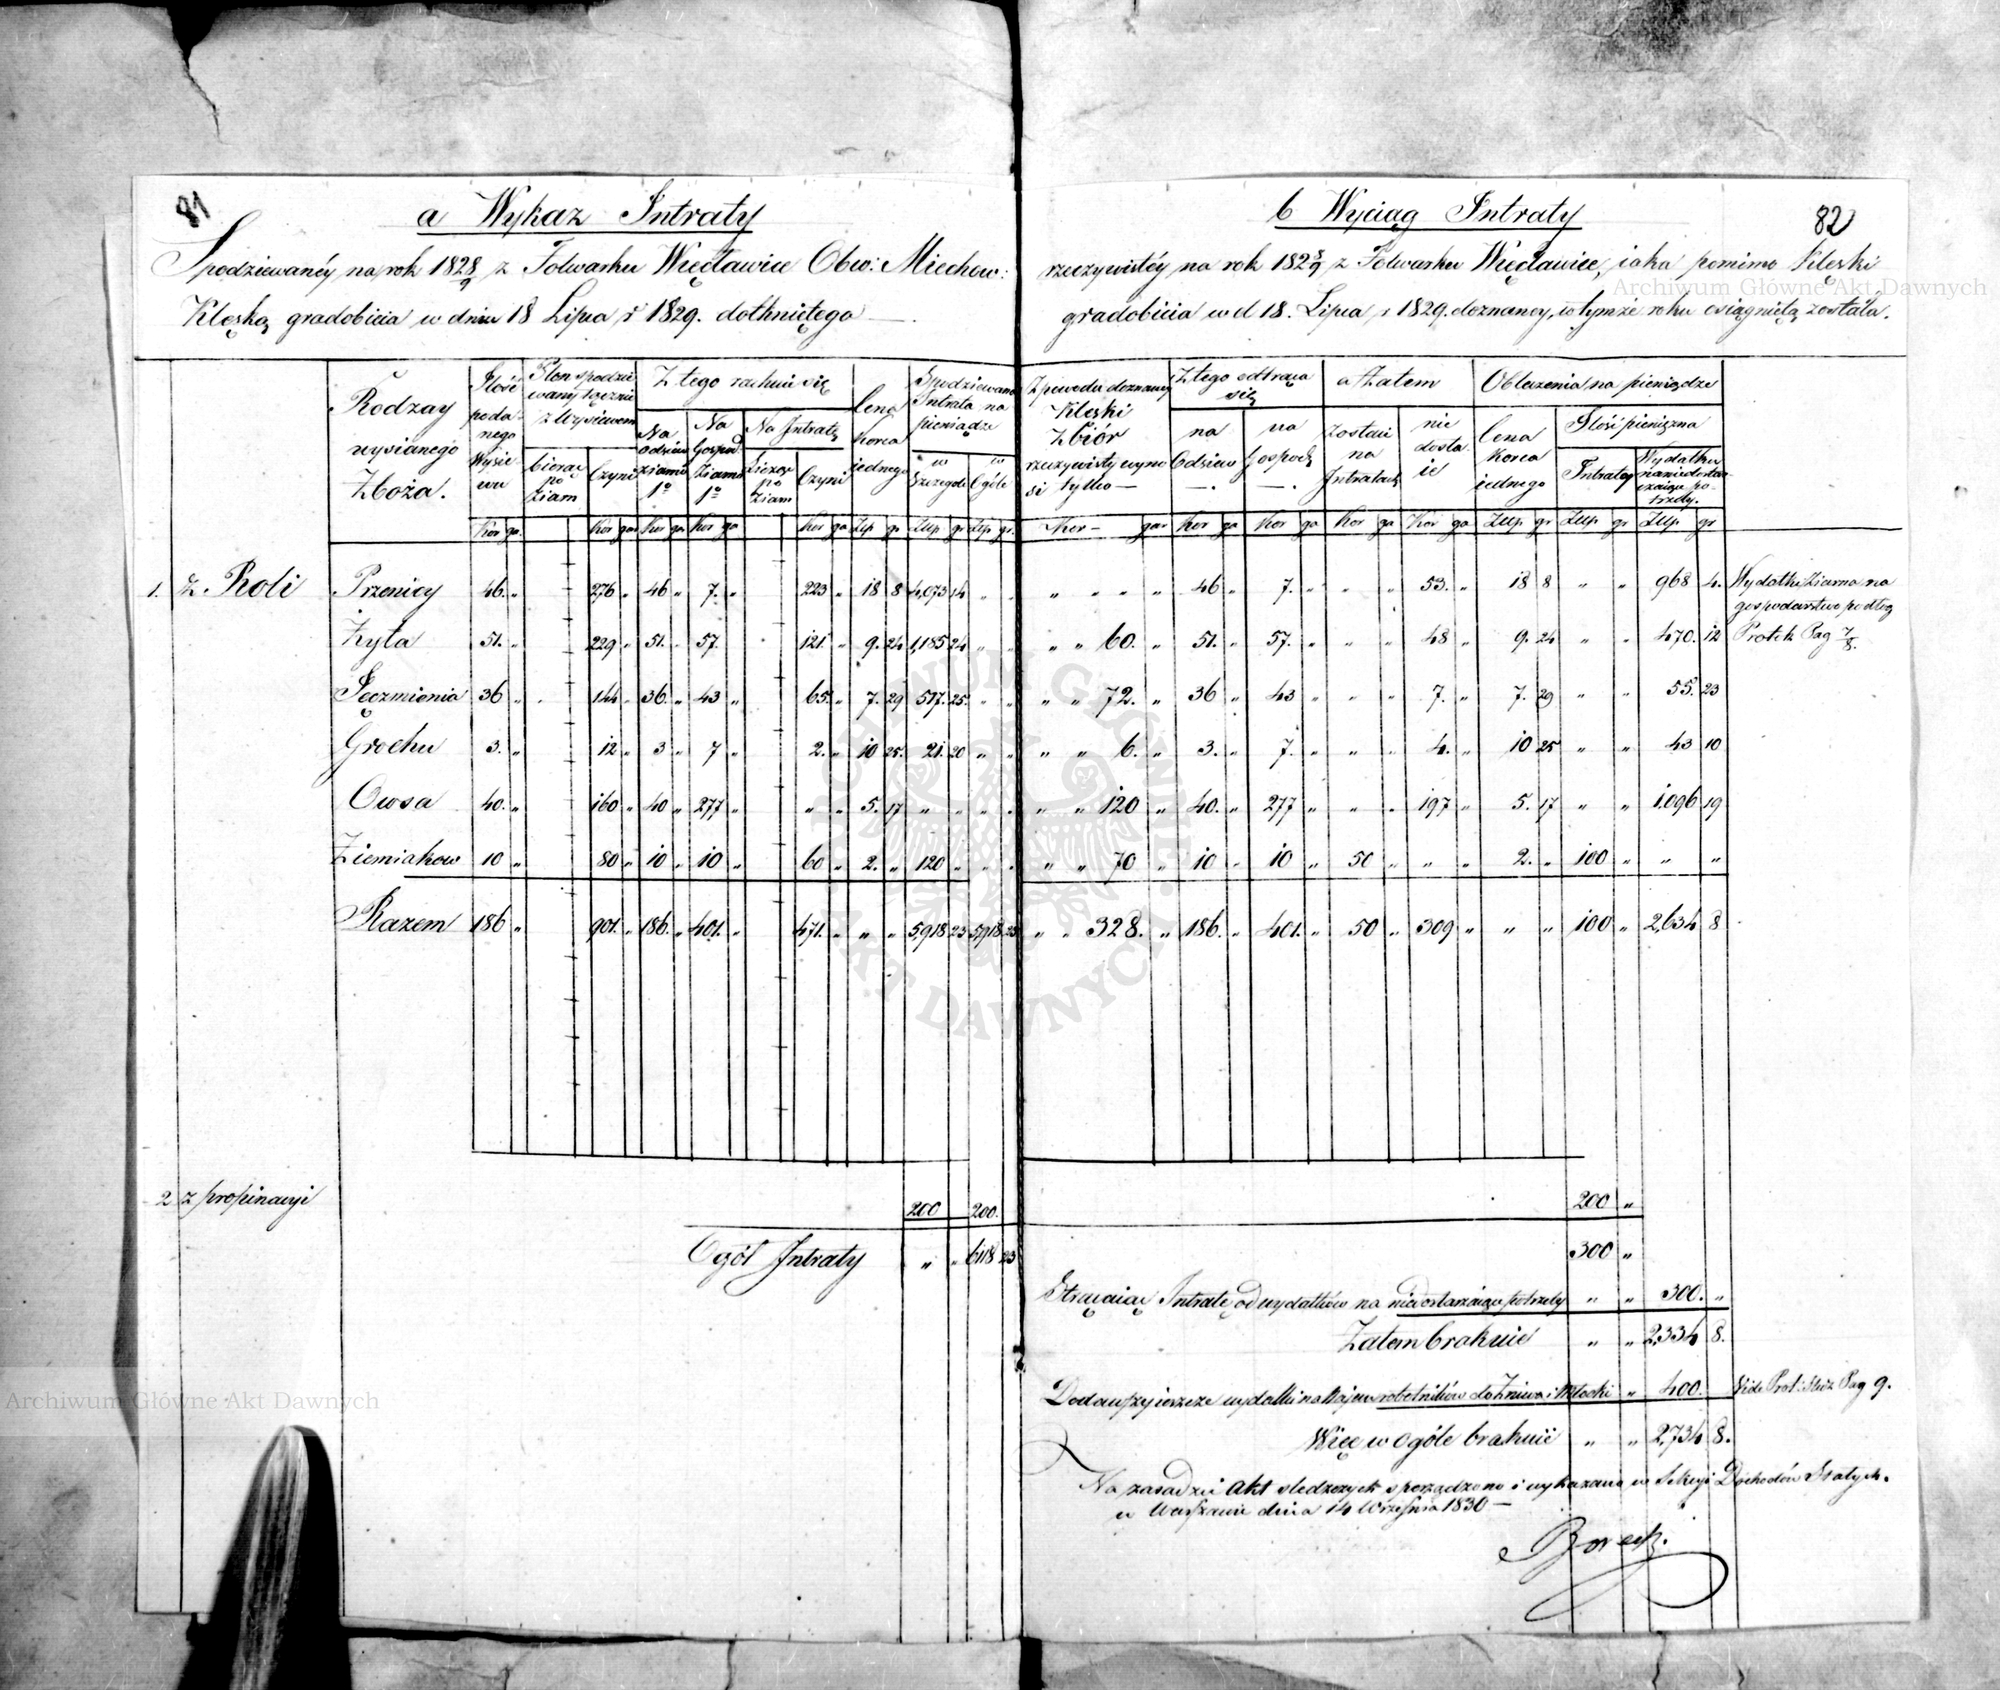 81
a Wykaz Intraty
Spodziewanéy na rok 1828/9 z Folwarku Więcławice Obw: Miechow:
Klęską gradobicia w dniu 18 Lipca r 1829. dotkniętego —
Rodzay wysianego Zboża.
Ilość podanego Wysiewu
Plon spodziewany łącznie z Wysiewem
biorąc po ziarn
Czyni
Z tego rachuie się
Na odsiew ziarno 1º
Na Gospod. Ziarno 1º
Na Intratę
Licząc po Ziarn
Czyni
Cena korca iednego
Spodziewana Intrata na pieniądze
w szczególe
w Ogóle
Kor ga. Kor gar Kor ga Kor ga Kor ga Złp gr Złp. gr Złp. gr.
1. z Roli Przenicy 46. „ 276 „ 46 „ 7. „ 223 „ 18 8 4,073 14 „ „
Żyta 51. „ 229 „ 51. „ 57. 121. „ 9. 24 1,185 24 „ „
Jęczmienia 36 „ 144 „ 36. „ 43 „ 65. „ 7. 29 517. 25. „ „
Grochu 3. „ 12 „ 3 „ 7 „ 2. „ 10 25. 21. 20 „ „
Owsa 40. „ 160 „ 40 „ 277 „ „ „ 5. 17 „ „ „ „
Ziemiakow 10 „ 80 „ 10 „ 10 „ 60 „ 2. „ 120 „ „ „
Razem 186 „ 901. „ 186. „ 401. „ 471. „ „ „ 5,918 23 5,918 23
2 z propinacyi 200 200.
Ogół Intraty „ „ 6118 23
82
b Wyciąg Intraty
rzeczywistéy na rok 1828/9 z Folwarku Więcławice, iaka pomimo Klęski
gradobicia w d 18. Lipca r 1829. doznaney, w tymże roku osiągniętą została.
Z powodu doznaney Klęski Zbiór rzeczywisty wynosi tylko —
Z tego odtrąca się
na Odsiew —.
na Gospod. —.
a Zatem
zostaie na Intratę
nie dostaie
Obliczenia na pieniądze
Cena korca iednego
Ilość pieniężna
Intraty
Wydatku na niedostarczaiące potrzeby.
Kor — gar Kor ga Kor ga Kor ga Kor ga Złp. gr Złp. gr Złp. gr
„ „ „ „ 46 „ 7. „ „ „ 53. „ 18 8 „ „ 968 4. Wydatki Ziarna na
gospodarstwo podług
„ „ 60. „ 51. „ 57. „ „ „ 48 „ 9. 24 „ „ 470. 12 Protok Pag 7/8.
„ „ 72. „ 36 „ 43 „ „ „ 7. „ 7. 29 „ „ 55. 23
„ „ 6. „ 3. „ 7. „ „ „ 4. „ 10 25 „ „ 43 10
„ „ 120 „ 40. „ 277 „ „ „ 197 „ 5. 17 „ „ 1,096 19
„ „ 70 „ 10 „ 10 „ 50 „ „ „ 2. „ 100 „ „ „
„ „ 328. „ 186. „ 401. „ 50 „ 309 „ „ „ 100 „ 2,634 8
200 „
300 „
Strącaiąc Intratę od wydatków na niedostarczaiące potrzeby „ „ 300. „
Zatem brakuie „ „ 2,334 8.
Dodawszy ieszcze wydatki na Najem robotników do żniwa i Młocki „ 400. Vide Prot: Pag 9.
Więc w Ogóle brakuie „ „ 2,734 8.
Na zasadzie Akt śledczych sporządzono i wykazano w Sekcyi Dochodów Stałych.
w Warszawie dnia 14 Września 1830 —
Archiwum Główne Akt Dawnych
Archiwum Główne Akt Dawnych
ARCHIWUM GŁÓWNE AKT DAWNYCH